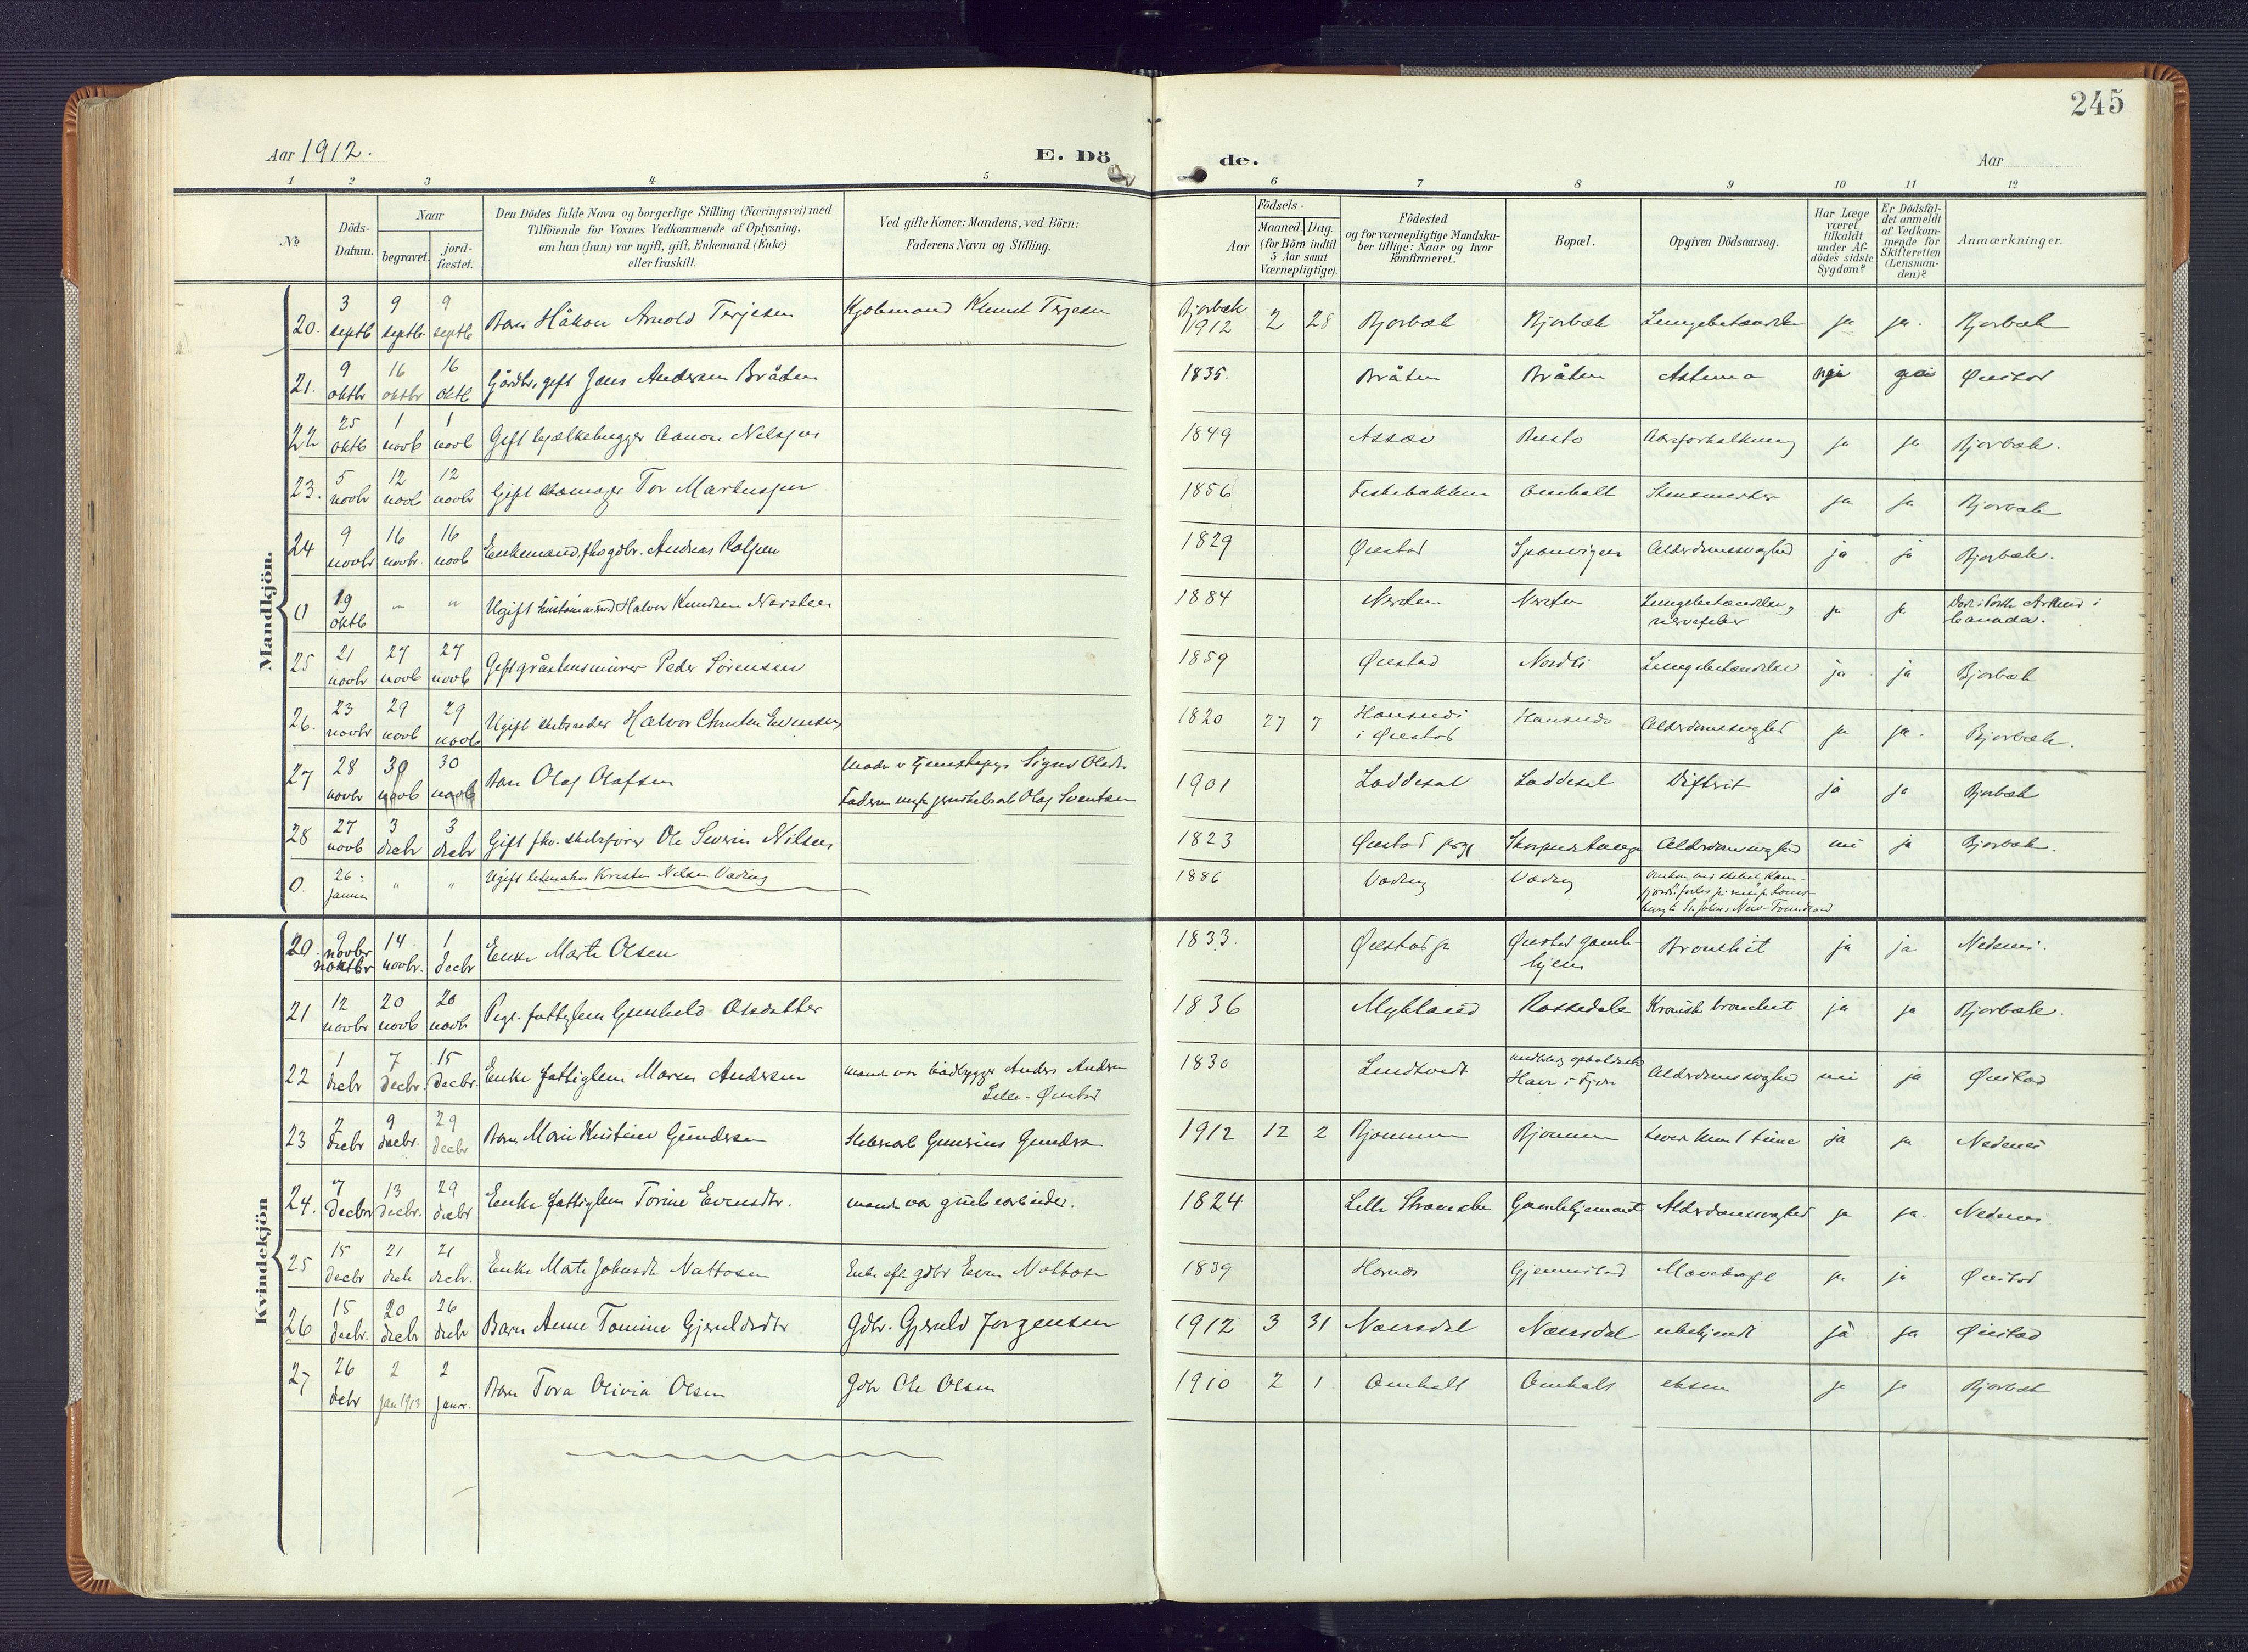 245
Aar 1912.
E. Dö de.
Aar
1 2 3 4 5 6 7 8 9 10 11 12
No
Döds-Datum.
Naar
begravet.
jord-fæstet.
Den Dödes fulde Navn og borgerlige Stilling (Næringsvei) med
Tilföiende for Voxnes Vedkommende af Oplysning,
om han (hun) var ugift, gift, Enkemand (Enke)
eller fraskilt.
Ved gifte Koner: Mandens, ved Börn:
Faderens Navn og Stilling.
Födsels-
Aar
Maaned. Dag.
(for Börn indtil
5 Aar samt
Værnepligtige).
Födested
og for værnepligtige Mandska-
ber tillige: Naar og hvor
konfirmeret.
Bopæl.
Opgiven Dödsaarsag.
Har Læge
været
tilkaldt
under Af-
dödes sidste
Sygdom?
Er Dödsfal-
det anmeldt
af Vedkom-
mende for
Skifteretten
(Lensman-
den)?
Anmærkninger.
Mandkjön.
20. 3 septb 9 septb. 9 septb Barn Håkon Arnold Terjesen Kjøbmand Knut Terjesen Bjorbæk 1912 2 28 Bjorbæk Bjorbæk Lungebetændelse ja ja. Bjorbæk
21. 9 oktbr 16 oktbr 16 oktb Gårdbr, gift Jens Andersen Bråten 1835. Bråten Bråten Astma nei Øiestad
22 25 oktb 1 novb 1 novb Gift bjælkehugger Aanon Nelsen 1849 Assæv Aareforkalkning ja ja Bjorbæk.
23. 5 novbr 12 novb 12 novbr Gift skomager Tor Markussen 1856 Fiskebakken Omholt ja ja Bjorbæk
24 9 novbr 16 novbr. 16 novb Enkemand, fhv gdbr. Andreas 1829 Øiestad Alderdomssvaghed ja ja Bjorbæk.
0 19 oktb " " Ugift Halvor Knudsen Nersten 1884 Nersten Nersten Lungebetændelse, nervefeber ja ja Død i Porth Arthur i Canada.
25 21 novbr 27 novb 27 novb Gift gråstensmurer Peder Sørensen 1859 Øiestad Nordli Lungebetændelse ja ja Bjorbæk
26. 23 novbr 29 novb 29 novb Ugift skibsreder Halvor Evensen 1820 27 7 i Øiestad Alderdomssvaghed ja ja. Bjorbæk.
27 28 novbr 30 novb 30 novb Barn Olaf Olafsen Moder er Tjenestepige Signe Olsdtr
Faderen Olaf Sventsen 1901 Løddesøl Løddesøl Difterit ja ja Bjorbæk
28 27 novb 3 decbr 3 decbr Gift fhv. skibsfører Ole Severin Nilsen 1823 Øiestad prgj Alderdomssvaghed nei ja Bjorbæk.
0. 26 januar " " Ugift letmatros Kristen Nelsen Vading 1886 Vading Vading
Kvindekjön
20. 9 novbr 14 novbr. 1 decbr Enke Marte Olsen 1833. Øiestad pr Øiestad gamle-hjem Bronkit ja ja Nedenes.
21 12 novbr 20 novb 20 novb Pige. fattiglem Gunhild Olsdatter 1836 Mykland Rossedalen Kronisk bronchit ja ja Bjorbæk.
22 1 decbr 7 decbr. 15 decbr. Enke fattiglem Maren Andersen mand var bådbygger Anders Andersen
Lille-Øiestad 1830 Lundtvedt Alderdomssvaghed nei ja Øiestad
23 2 decbr 9 decbr. 29 decbr Barn Marie Kristine Gundersen Gunerius Gundersen 1912 12 2 Bjønnum Bjønnum Levet kun 1 time ja ja Nedenes
24. 7 decbr 13 decbr. 29 decbr Enke fattiglem Torine Evensdtr. mand var grubearbeider. 1824 Lille Strømsbu Gamlehjemmet Alderdomssvaghed ja ja. Nedenes.
25 15 decbr 21 decb 21 decbr. Enke Marte Johnsdt Nattosen Enke efter gdbr Even 1839 Gjennestad ja ja Øiestad
26 15 decbr. 20 decbr 26 decbr Barn Anne Tomine Gjeruldsdtr Gdbr. Gjeruld Jorgensen 1912 3 31 Nærsdal Nærsdal ubekjendt ja ja Øiestad
27 26 debr 2 jan 1913 2 januar. Barn Tora Olivia Olsen Gdbr Ole Olsen 1910 2 1 Omholt Omholt eksem ja ja Bjorbæk